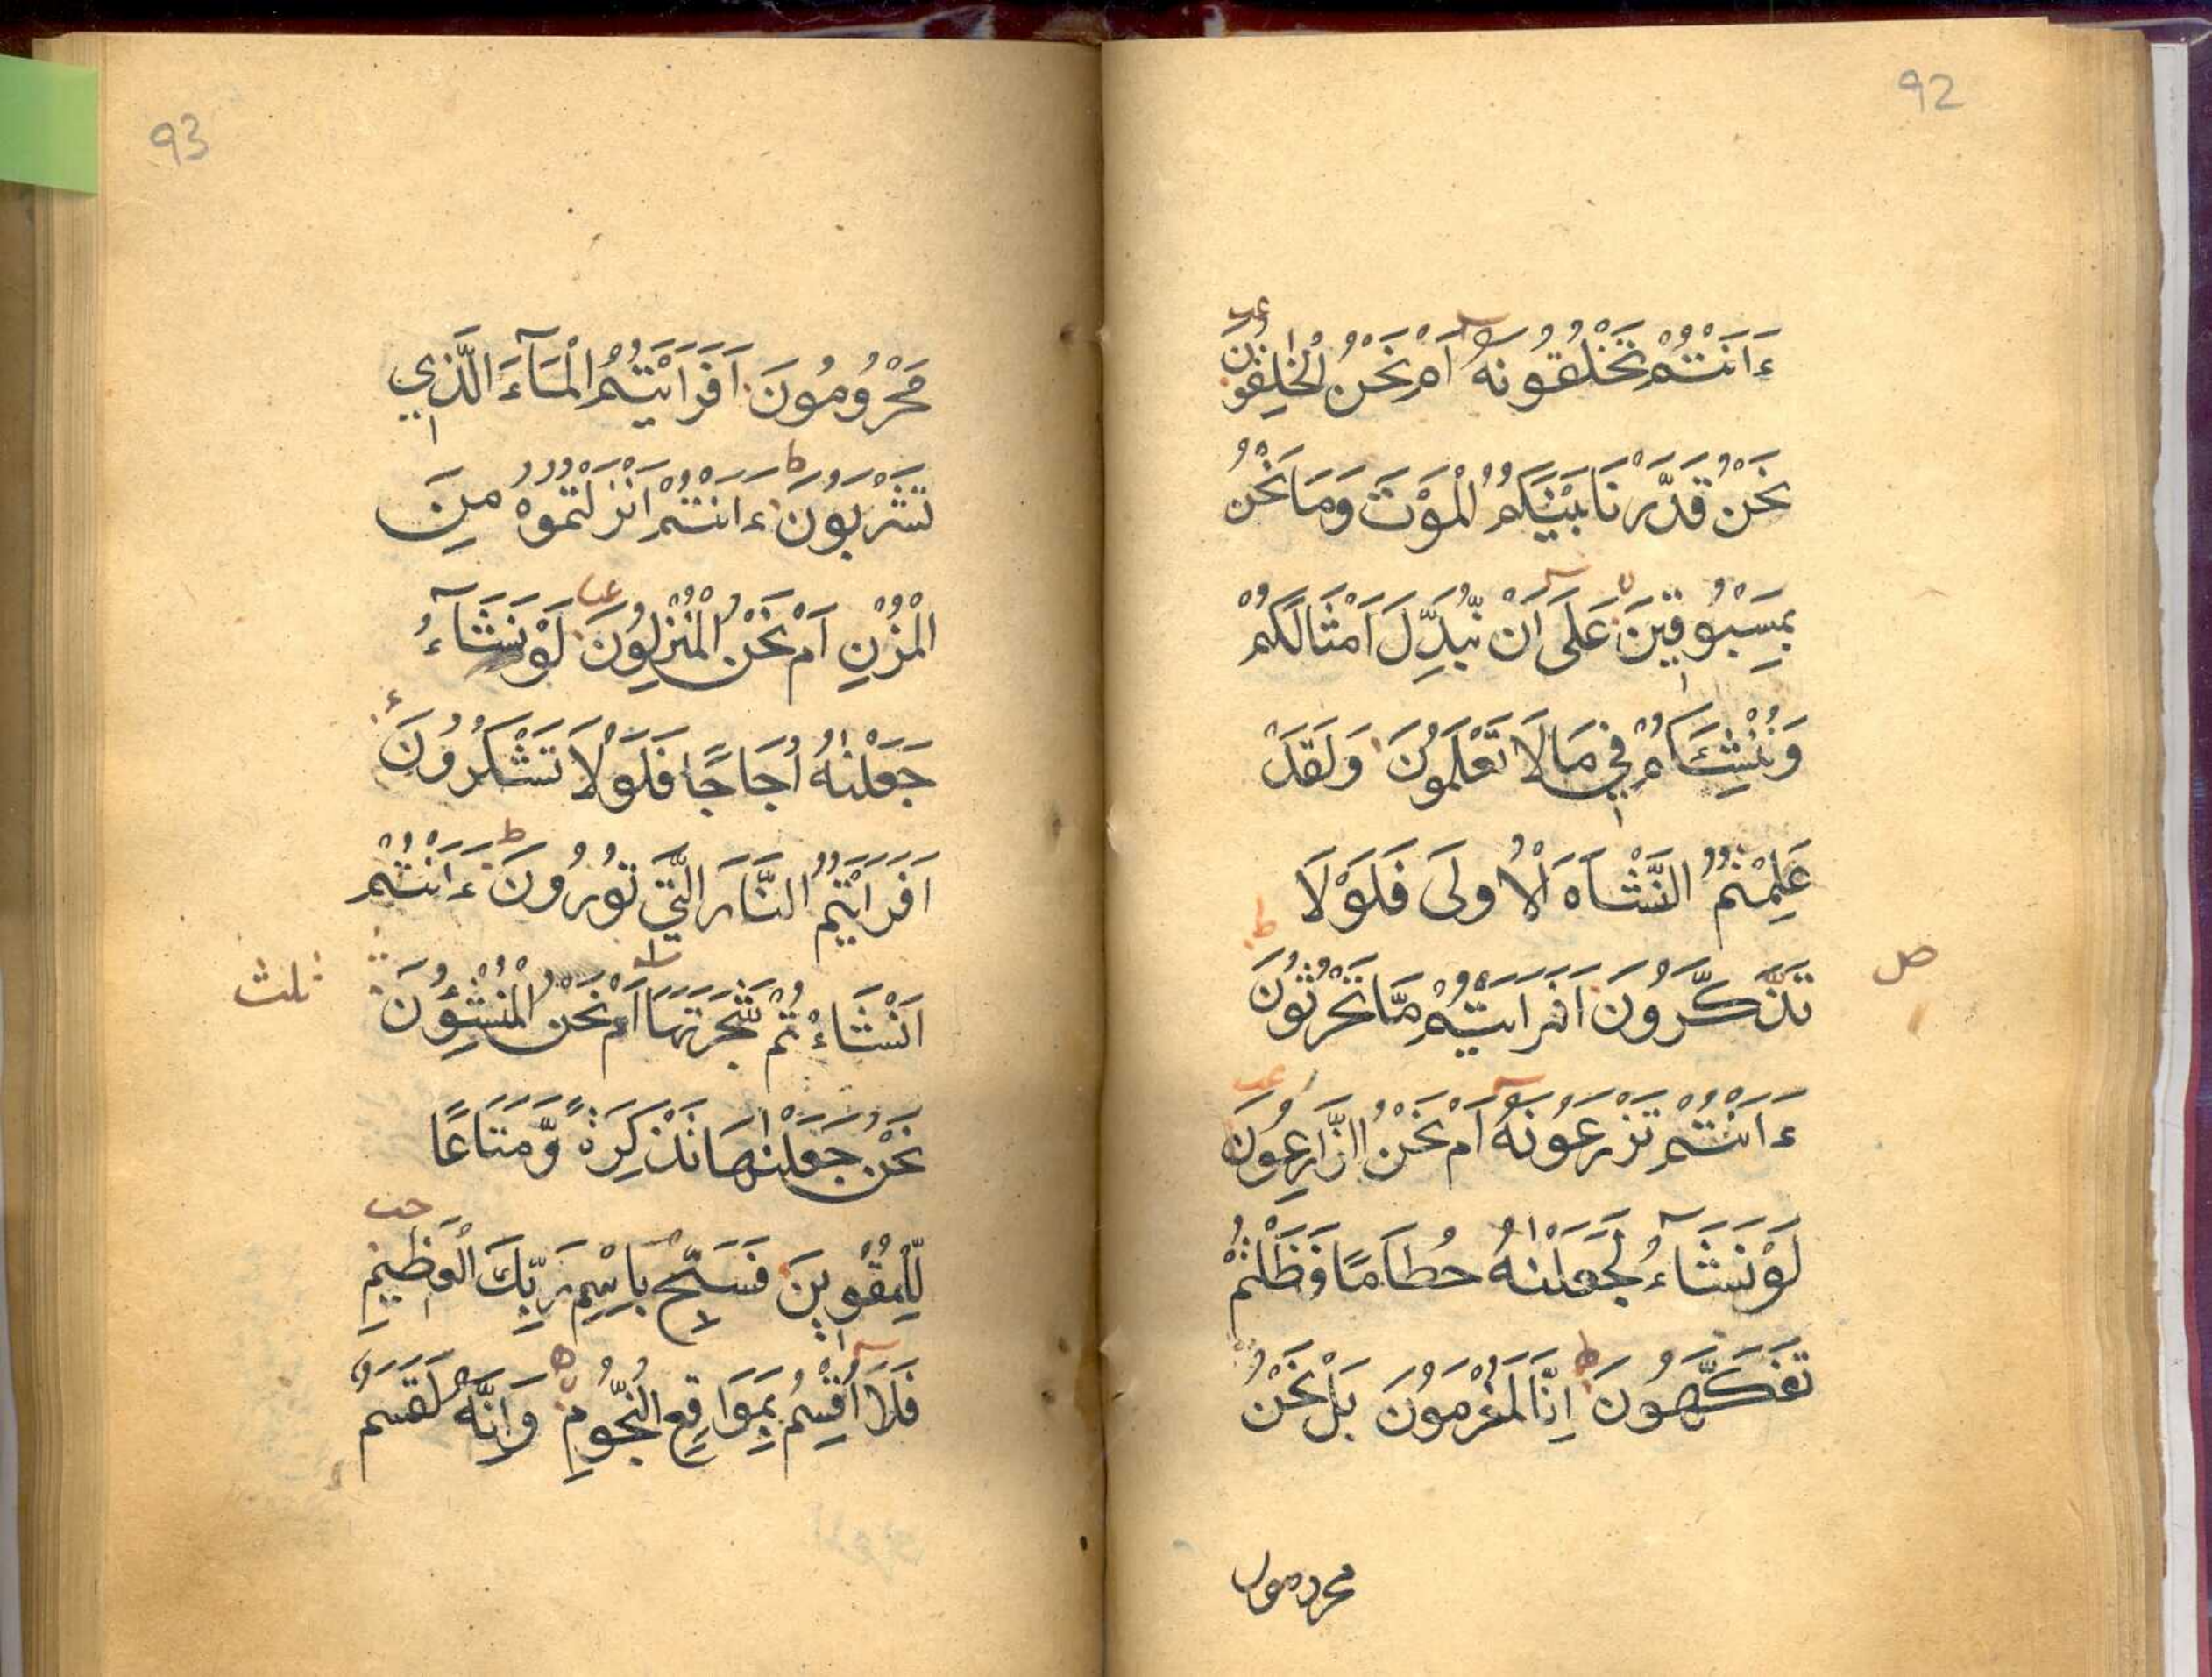 92
ءَاَنْتُمْ تَخْلُقُوْنَهٗ اَمْ نَحْنُ الْخٰلِقُوْنَ
نَحْنُ قَدَّرْنَا بَيْنَكُمُ الْمَوْتَ وَمَا نَحْنُ
بِمَسْبُوْقِيْنَ عَلٰى اَنْ نُّبَدِّلَ اَمْثَالَكُمْ
وَنُنْشِئَكُمْ فِيْ مَا لَا تَعْلَمُوْنَ وَلَقَدْ
عَلِمْتُمُ النَّشْاَةَ الْاُوْلٰى فَلَوْلَا
تَذَكَّرُوْنَ اَفَرَاَيْتُمْ مَّا تَحْرُثُوْنَ
صل
ءَاَنْتُمْ تَزْرَعُوْنَهٗ اَمْ نَحْنُ الزَّارِعُوْنَ
لَوْ نَشَآءُ لَجَعَلْنٰهُ حُطَامًا فَظَلْتُمْ
تَفَكَّهُوْنَ اِنَّا لَمُغْرَمُوْنَ بَلْ نَحْنُ
محرومون
93
مَحْرُوْمُوْنَ اَفَرَاَيْتُمُ الْمَآءَ الَّذِيْ
تَشْرَبُوْنَ ءَاَنْتُمْ اَنْزَلْتُمُوْهُ مِنَ
الْمُزْنِ اَمْ نَحْنُ الْمُنْزِلُوْنَ لَوْ نَشَآءُ
جَعَلْنٰهُ اُجَاجًا فَلَوْلَا تَشْكُرُوْنَ
اَفَرَاَيْتُمُ النَّارَ الَّتِيْ تُوْرُوْنَ ءَاَنْتُمْ
اَنْشَاْءْتُمْ شَجَرَتَهَا اَمْ نَحْنُ الْمُنْشِؤُنَ
ثلث
نَحْنُ جَعَلْنٰهَا تَذْكِرَةً وَّمَتَاعًا
لِّلْمُقْوِيْنَ فَسَبِّحْ بِاسْمِ رَبِّكَ الْعَظِيْمِ
فَلَا اُقْسِمُ بِمَوَاقِعِ النُّجُوْمِ وَاِنَّهٗ لَقَسَمٌ